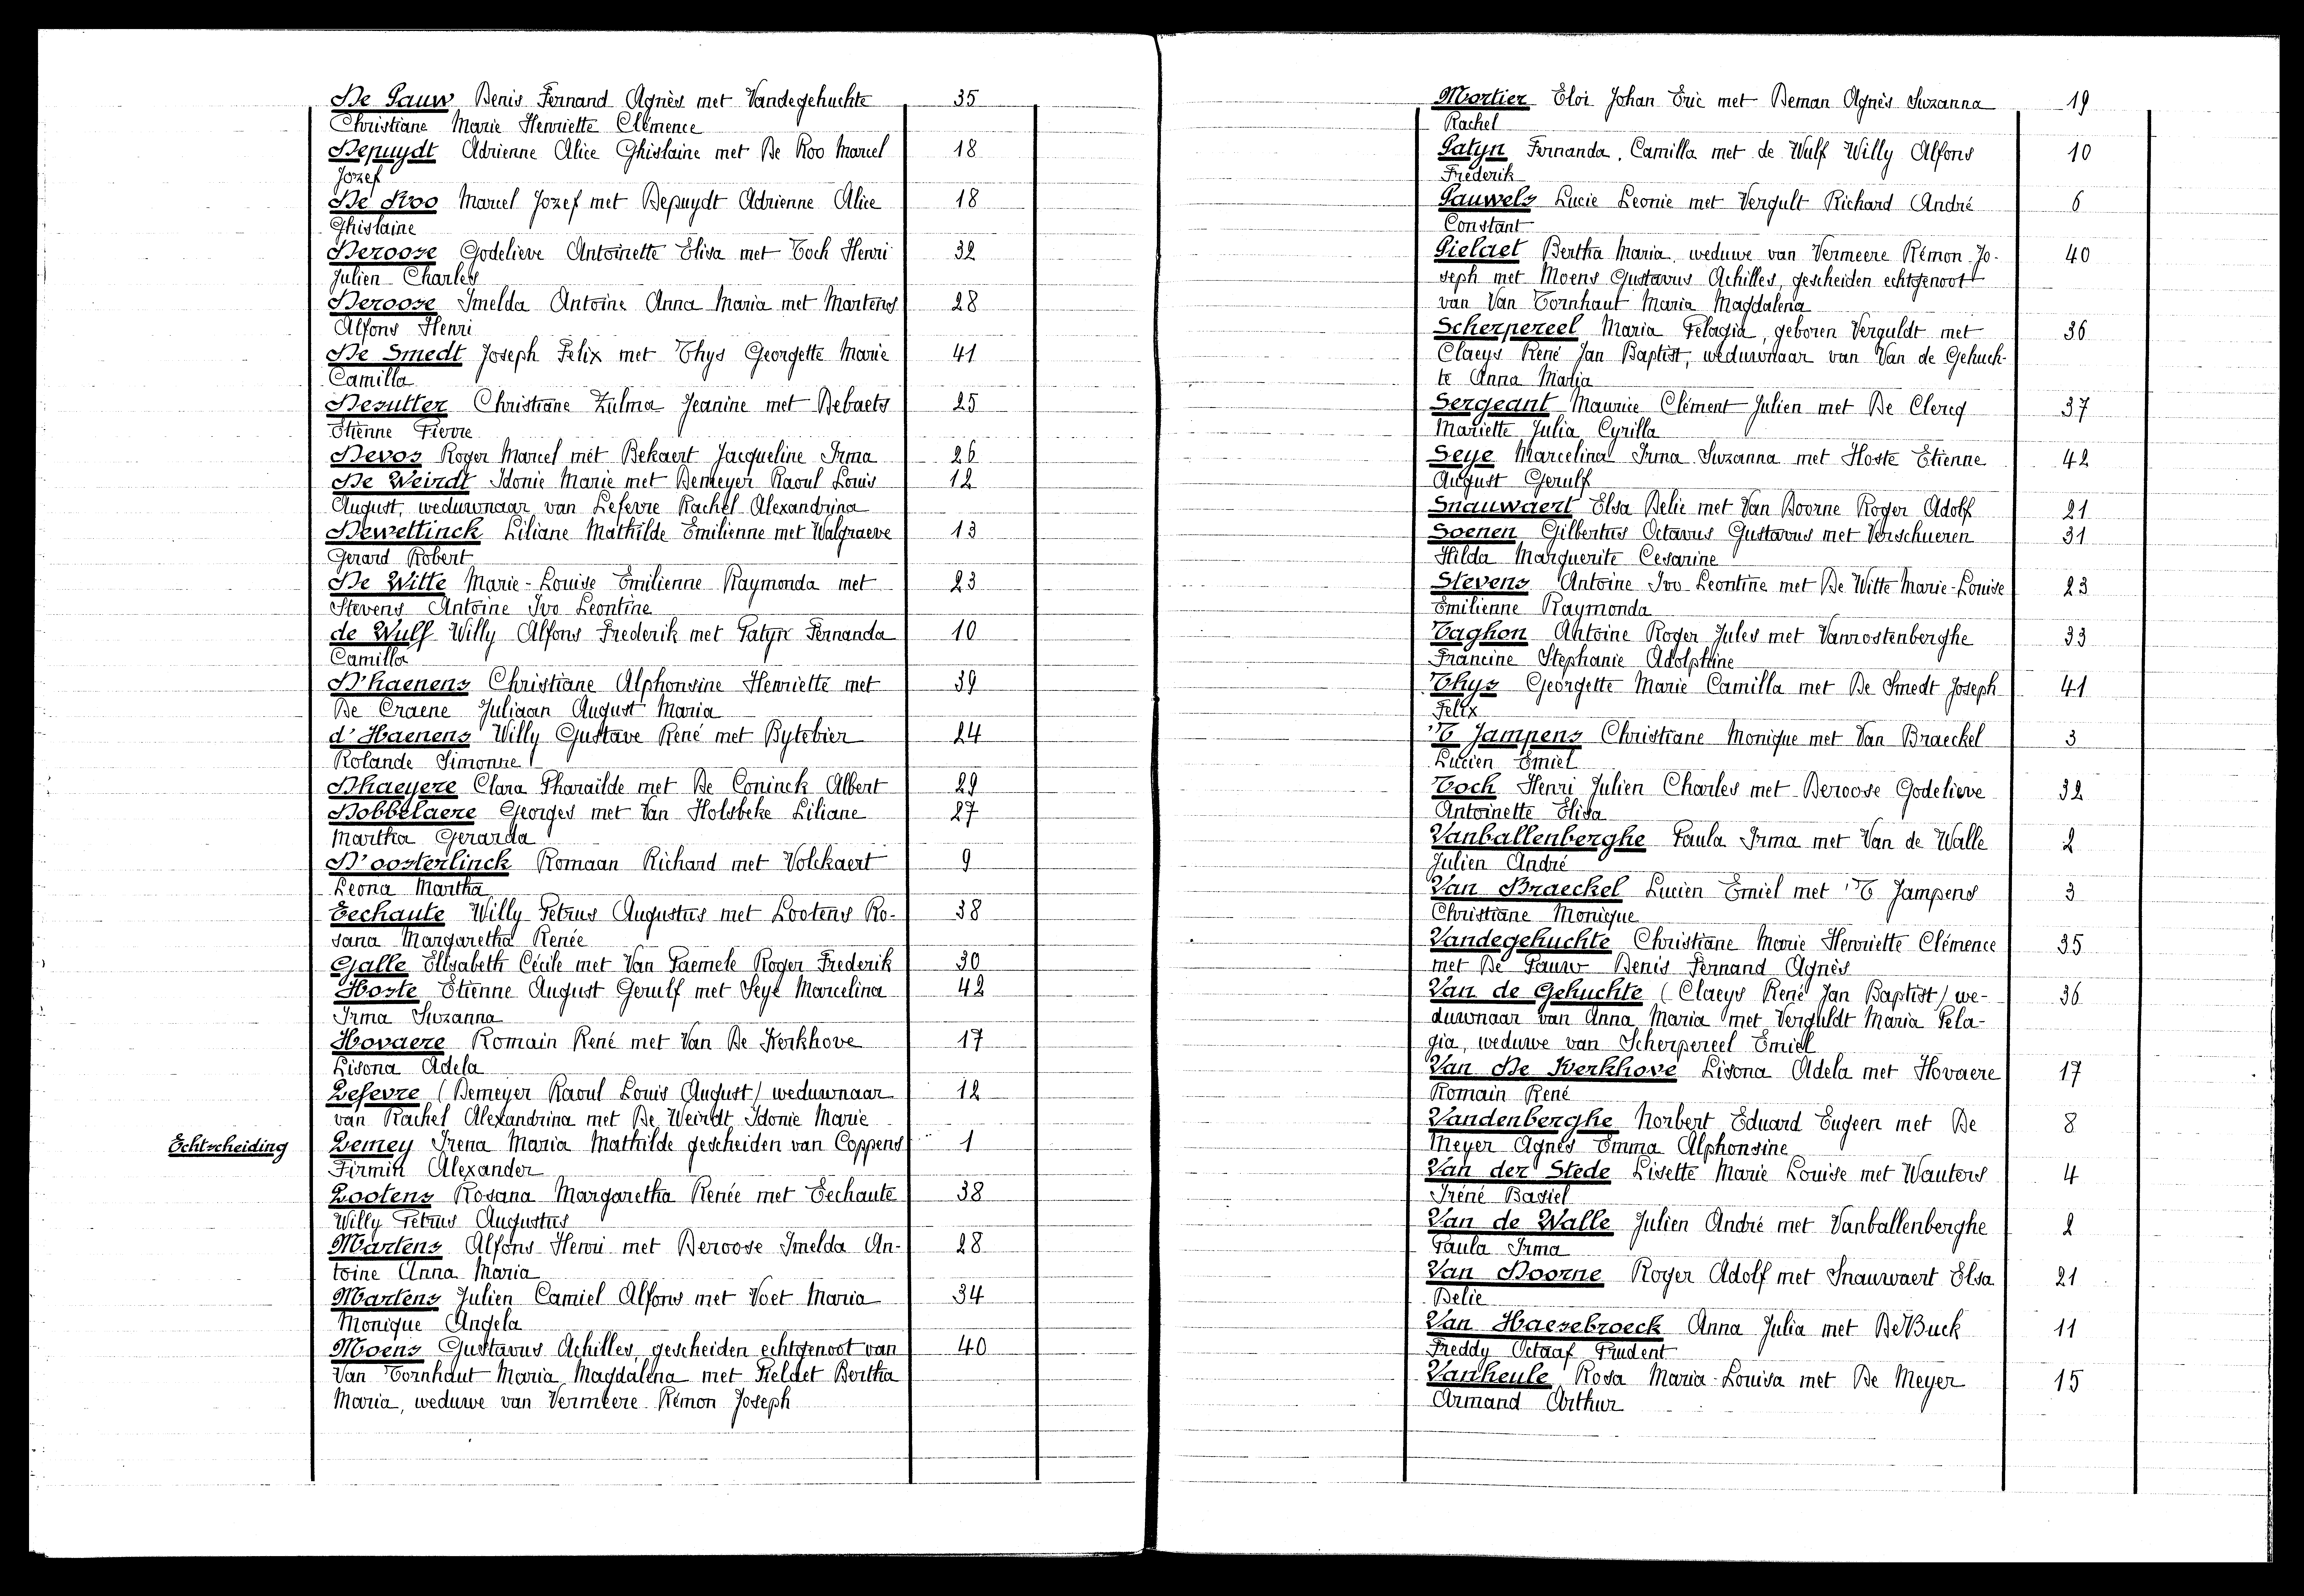 De Pauw Denis Fernand Agnès met Vandegehuchte 35
Christiane Marie Henriette Clémence
Depuydt Adrienne Alice Ghislaine met De Roo Marcel 18
Jozef
De Roo Marcel Jozef met Depuydt Adrienne Alice 18
Ghislaine
Deroose Godelieve Antoinette Elisa met Toch Henri 32
Julien Charles
Deroose Imelda Antoine Anna Maria met Martens 28
Alfons Henri
De Smedt Joseph Felix met Thys Georgette Marie 41
Camilla
Desutter Christiane Zulma Jeanine met Debaets 25
Etienne Pierre
Devos Roger Marcel met Bekaert Jacqueline Irma 26
De Weirdt Idonie Marie met Demeyer Raoul Louis 12
August, weduwnaar van Lefevre Rachel Alexandrina
Dewettinck Liliane Mathilde Emilienne met Walgraeve 13
Gerard Robert
De Witte Marie-Louise Emilienne Raymonda met 23
Stevens Antoine Ivo Leontine
de Wulf Willy Alfons Frederik met Patyn Fernanda 10
Camilla
D'haenens Christiane Alphonsine Henriette met 39
De Craene Juliaan August Maria
d'Haenens Willy Gustave René met Bytebier 24
Rolande Simonne
Dhaeyere Clara Pharaïlde met De Coninck Albert 29
Dobbelaere Georges met Van Holsbeke Liliane 27
Martha Gerarda
D'oosterlinck Romaan Richard met Volckaert 9
Leona Martha
Eechaute Willy Petrus Augustus met Lootens Ro- 38
sana Margaretha Renée
Galle Elisabeth Cécile met Van Paemele Roger Frederik 30
Hoste Etienne August Gerulf met Seye Marcelina 42
Irma Suzanna
Hovaere Romain René met Van De Kerkhove 17
Lisona Adela
Lefevre (Demeyer Raoul Louis August) weduwnaar 12
van Rachel Alexandrina met De Weirdt Idonie Marie
Echtscheiding Lemey Irena Maria Mathilde gescheiden van Coppens 1
Firmin Alexander
Lootens Rosana Margaretha Renée met Eechaute 38
Willy Petrus Augustus
Martens Alfons Henri met Deroose Imelda An- 28
toine Anna Maria
Martens Julien Camiel Alfons met Voet Maria 34
Monique Angela
Moens Gustavus Achilles, gescheiden echtgenoot van 40
Van Tornhaut Maria Magdalena met Pieldet Bertha
Maria, weduwe van Vermeere Rémon Joseph
Mortier Eloi Johan Eric met Deman Agnès Suzanna 19
Rachel
Patyn Fernanda, Camilla met de Wulf Willy Alfons 10
Frederik
Pauwels Lucie Leonie met Vergult Richard André 6
Constant
Pielaet Bertha Maria, weduwe van Vermeere Rémon Jo- 40
seph met Moens Gustavus Achilles, gescheiden echtgenoot
van Van Tornhaut Maria Magdalena
Scherpereel Maria Pelagia, geboren Verguldt met 36
Claeys René Jan Baptist, weduwnaar van Van de Gehuch-
te Anna Maria
Sergeant Maurice Clément Julien met De Clercq 37
Mariette Julia Cyrilla
Seye Marcelina Irma Suzanna met Hoste Etienne 42
August Gerulf
Snauwaert Elsa Delie met Van Doorne Roger Adolf 21
Soenen Gilbertus Octavus Gustavus met Verschueren 31
Hilda Marguerite Cesarine
Stevens Antoine Ivo Leontine met De Witte Marie-Louise 23
Emilienne Raymonda
Taghon Antoine Roger Jules met Vanrostenberghe 33
Francine Stephanie Adolphine
Thys Georgette Marie Camilla met De Smedt Joseph 41
Felix
'T Jampens Christiane Monique met Van Braeckel 3
Lucien Emiel
Toch Henri Julien Charles met Deroose Godelieve 32
Antoinette Elisa
Vanballenberghe Paula Irma met Van de Walle 2
Julien André
Van Braeckel Lucien Emiel met 'T Jampens 3
Christiane Monique
Vandegehuchte Christiane Marie Henriette Clémence 35
met De Pauw Denis Fernand Agnès
Van de Gehuchte (Claeys René Jan Baptist) we- 36
duwnaar van Anna Maria met Verguldt Maria Pela-
gia, weduwe van Scherpereel Emiel
Van De Kerkhove Lisona Adela met Hovaere 17
Romain René
Vandenberghe Norbert Eduard Eugeen met De 8
Meyer Agnès Emma Alphonsine
Van der Stede Lisette Marie Louise met Wauters 4
Iréné Basiel
Van de Walle Julien André met Vanballenberghe 2
Paula Irma
Van Doorne Roger Adolf met Snauwaert Elsa 21
Delie
Van Haesebroeck Anna Julia met De Buck 11
Freddy Octaaf Prudent
Vanheule Rosa Maria-Louisa met De Meyer 15
Armand Arthur